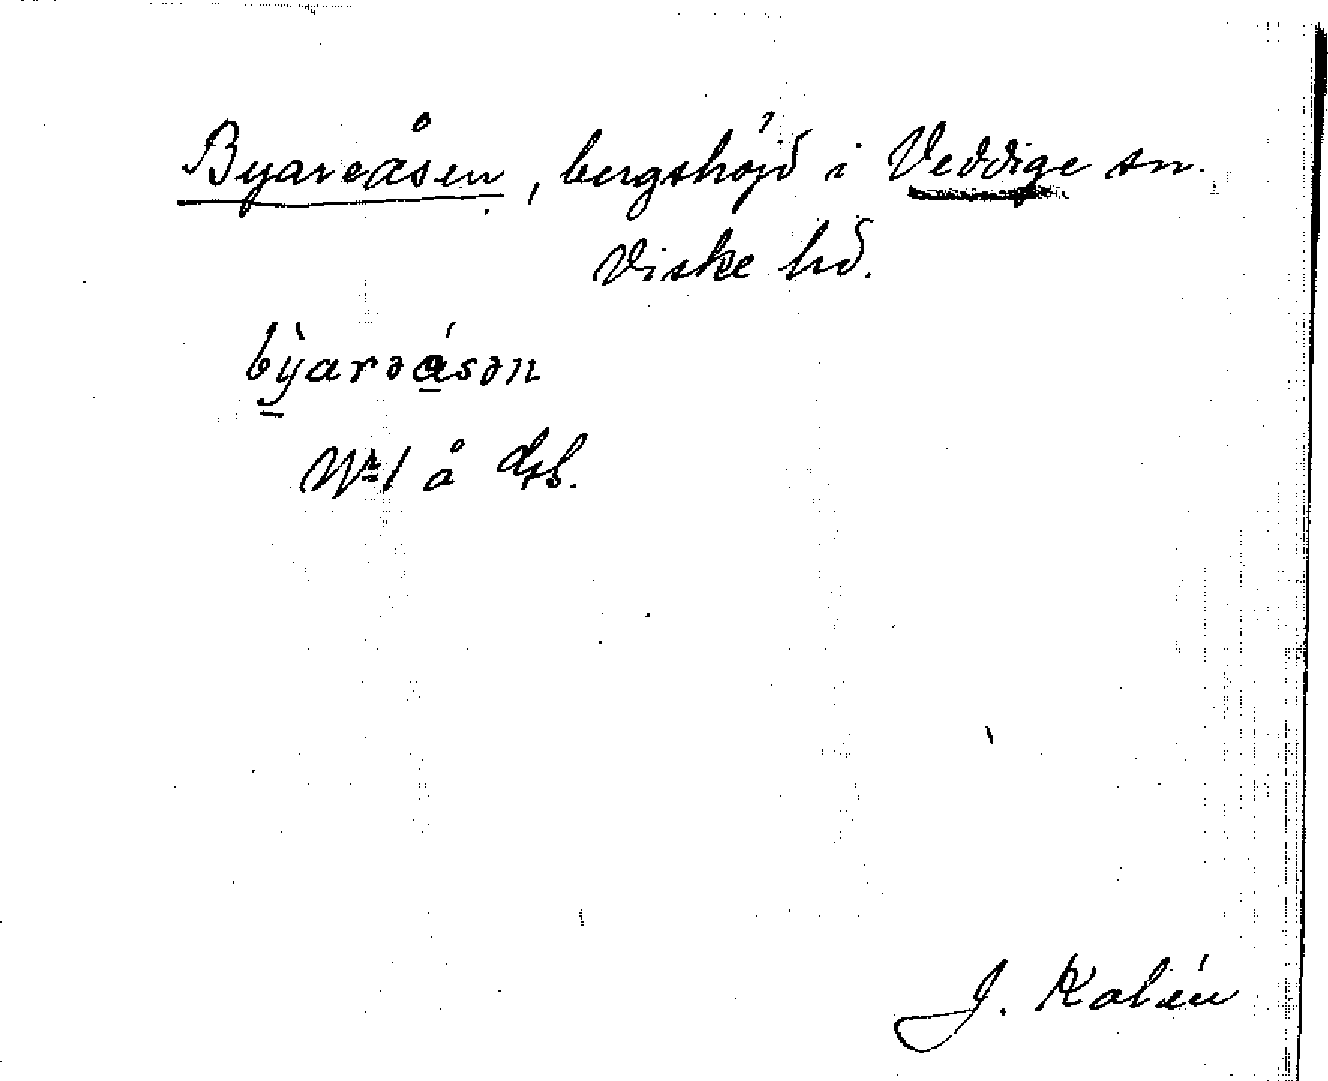 Byareåsen, bergshöjd i Veddige sn.
Viske hd.
bỳarəásən
Nr 1 å dsb.
J. Kalén